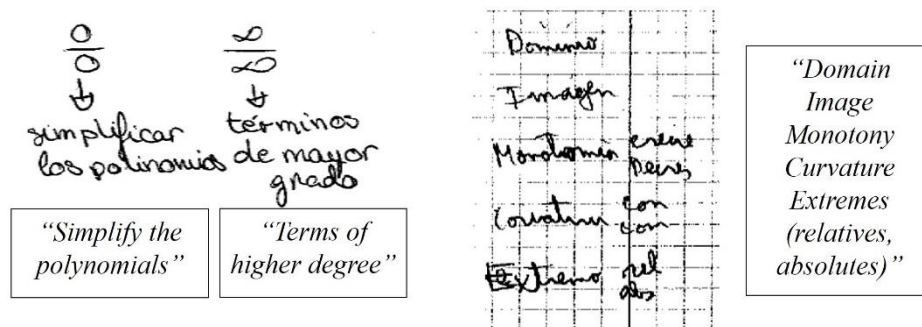 0/0
simplificar
los polinomios
∞/∞
términos
de mayor
grado
“Simplify the
polynomials”
“Terms of
higher degree”
Dominio
Imagen
Monotomia crece
Decrec
Curvatura con
com
Extremo rel
abs
“Domain
Image
Monotony
Curvature
Extremes
(relatives,
absolutes)”